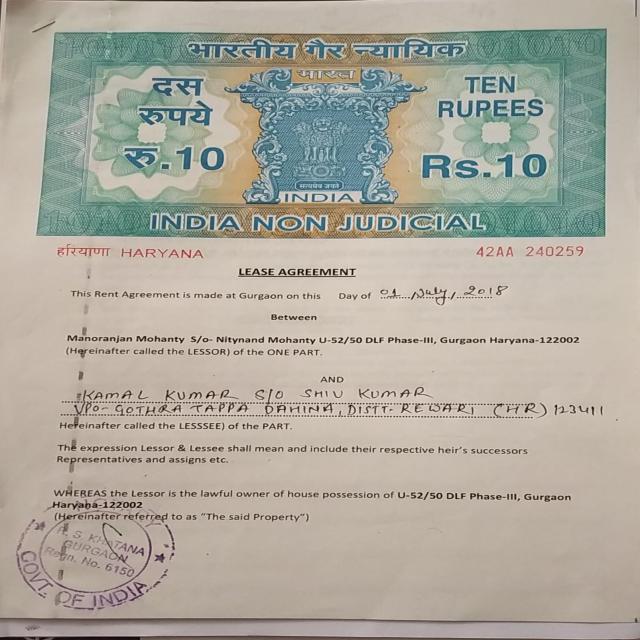 भारतीय गैर न्यायिक
भारत
दस
रुपये
रु.10
TEN
RUPEES
Rs.10
सत्यमेव जयते
INDIA
INDIA NON JUDICIAL
हरियाणा HARYANA
42AA 240259
LEASE AGREEMENT
This Rent Agreement is made at Gurgaon on this Day of 01 July, 2018
Between
Manoranjan Mohanty S/o- Nitynand Mohanty U-52/50 DLF Phase-III, Gurgaon Haryana-122002
(Hereinafter called the LESSOR) of the ONE PART.
AND
KAMAL KUMAR S/O SHIV KUMAR
VPO- GOTHRA TAPPA DAHINA, DISTT- REWARI (HR) 123411
Hereinafter called the LESSSEE) of the PART.
The expression Lessor & Lessee shall mean and include their respective heir's successors
Representatives and assigns etc.
WHEREAS the Lessor is the lawful owner of house possession of U-52/50 DLF Phase-III, Gurgaon
Haryana-122002
(Hereinafter referred to as "The said Property")
S. KHATANA
GURGAON
Regn. No. 6150
GOVT. OF INDIA